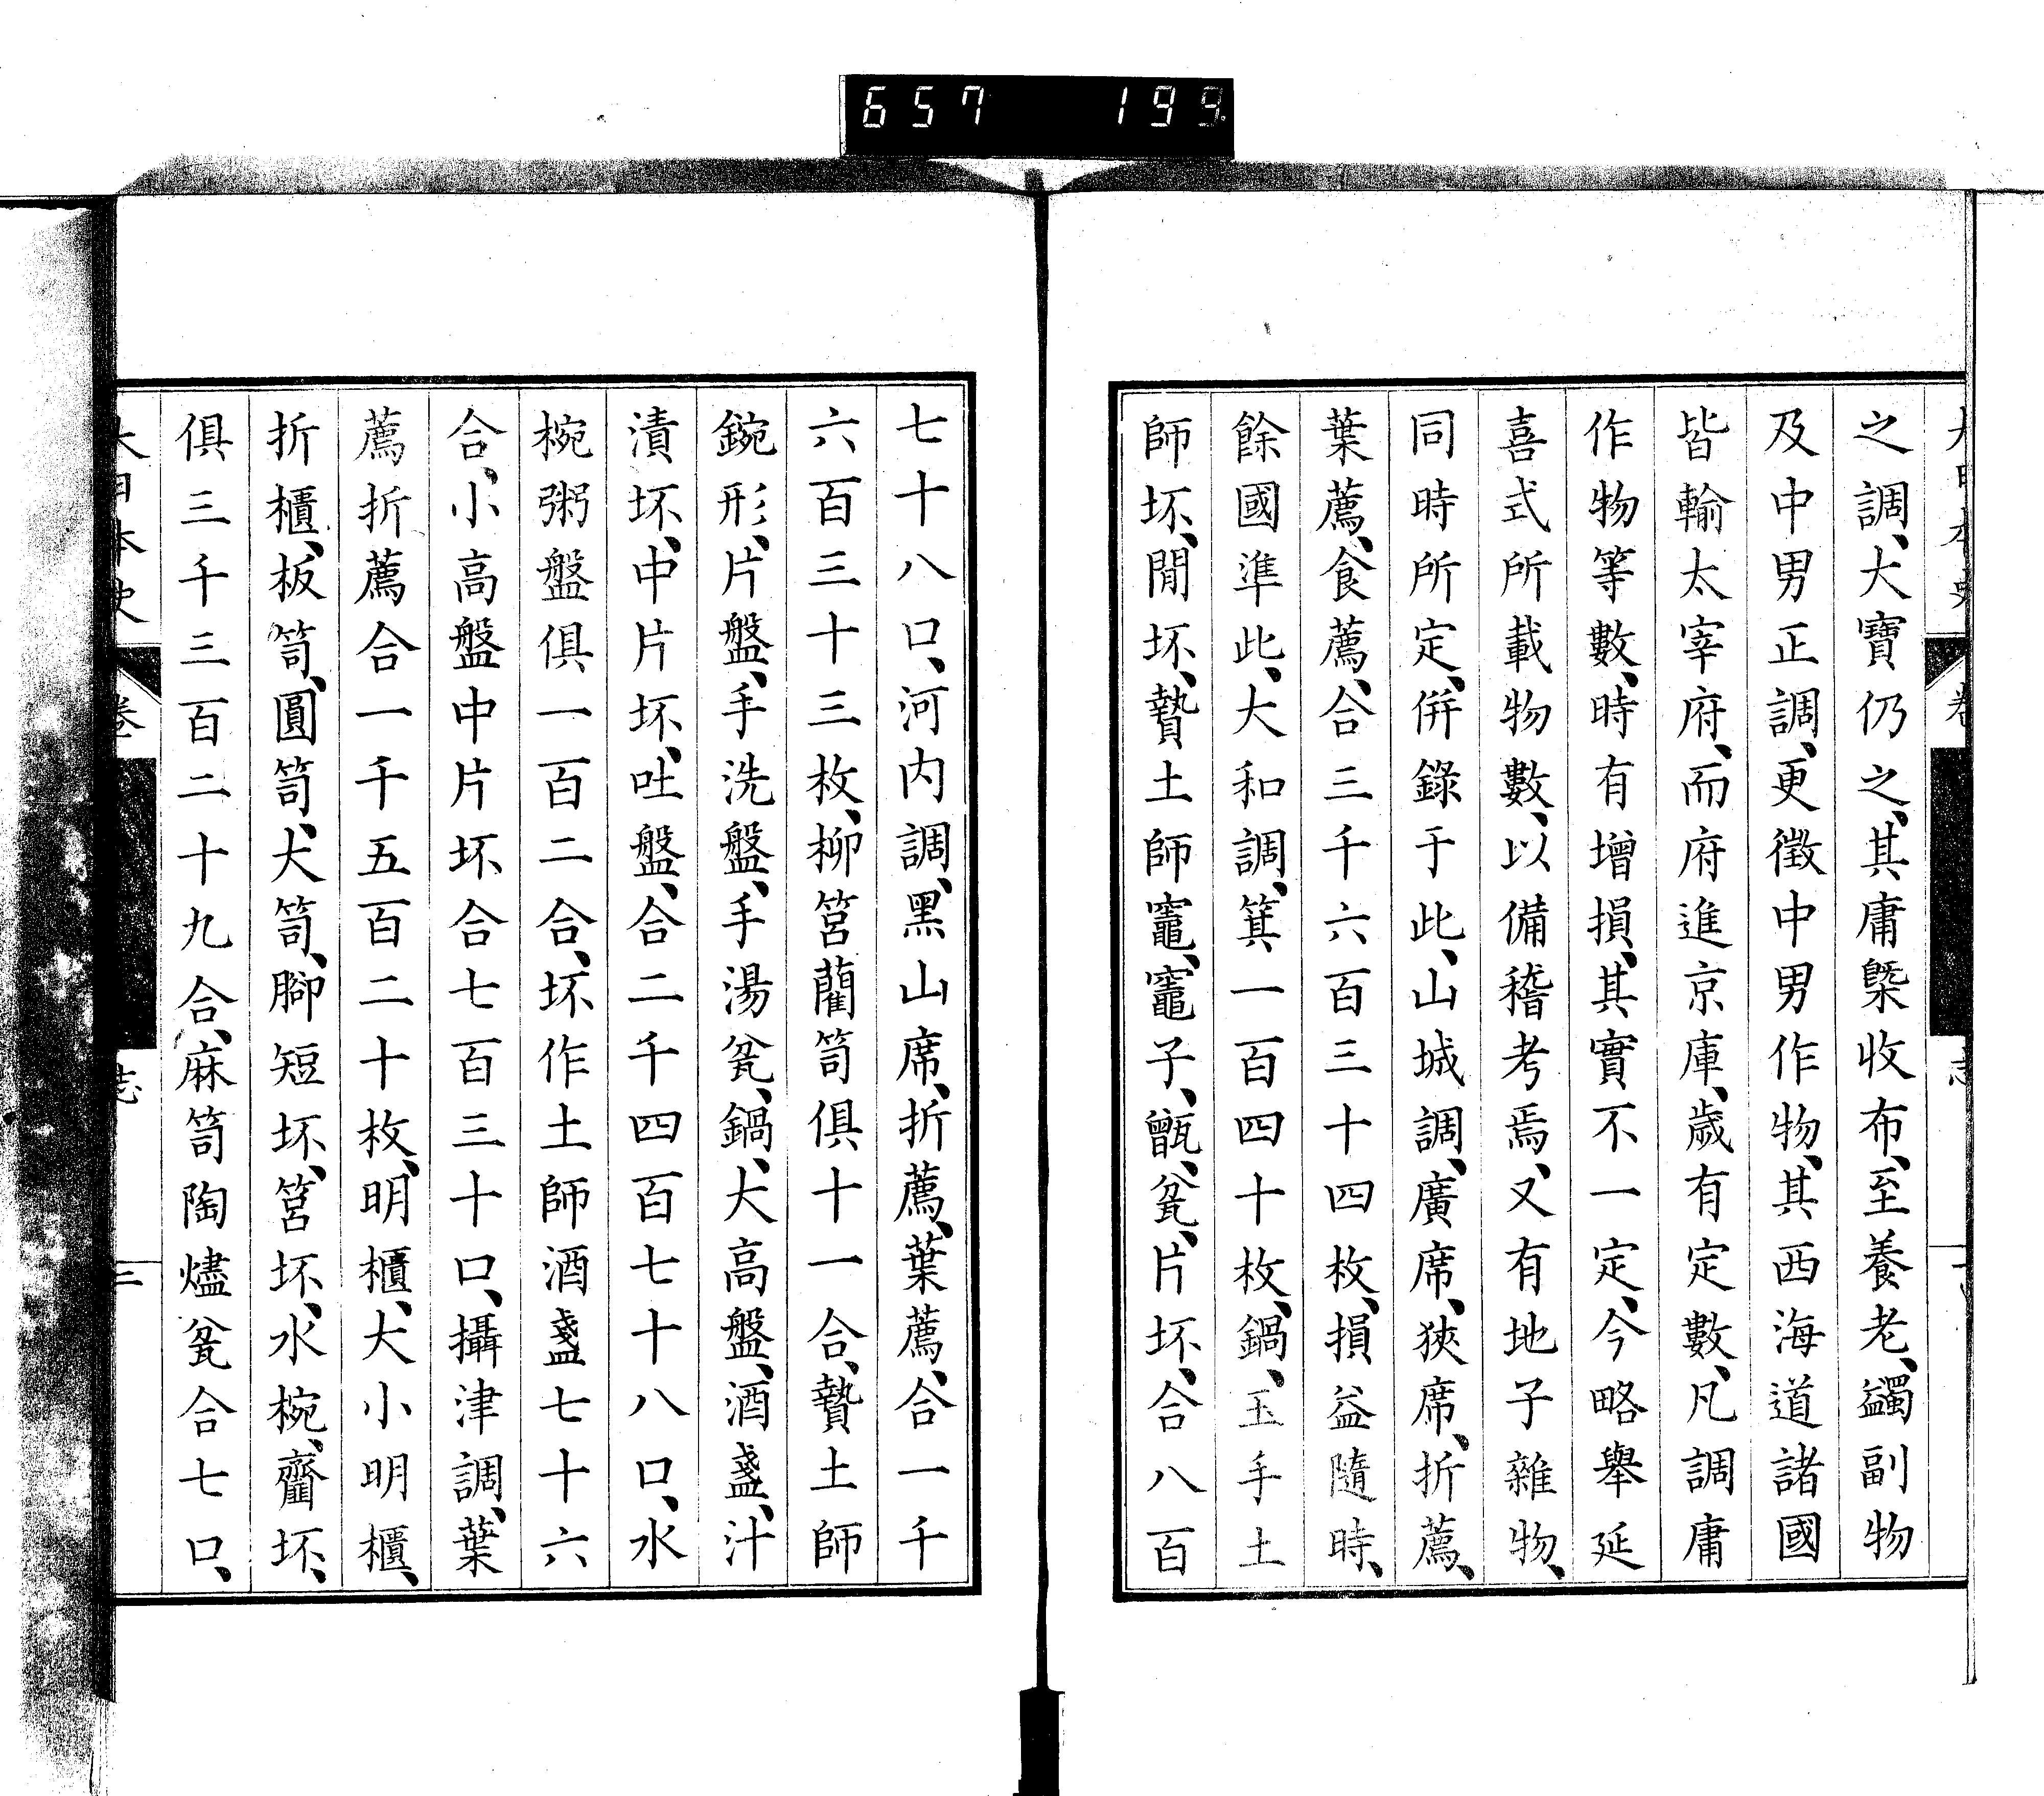 657 199
之調、大寶仍之、其庸槩收布、至養老、蠲副物
及中男正調、更徵中男作物、其西海道諸國
皆輸太宰府、而府進京庫、歲有定數、凡調庸
作物等數、時有增損、其實不一定、今略舉延
喜式所載物數、以備稽考焉、又有地子雜物、
同時所定、併錄于此、山城調、廣席、狹席、折薦、
葉薦、食薦、合三千六百三十四枚、損益隨時、
餘國準此、大和調、箕一百四十枚、鍋、玉手土
師坏、間坏、贄土師竈、竈子、甑、瓫、片坏、合八百
七十八口、河内調、黑山席、折薦、葉薦、合一千
六百三十三枚、柳筥藺笥俱十一合、贄土師
鋺形、片盤、手洗盤、手湯瓫、鍋、大高盤、酒盞、汁
漬坏、中片坏、吐盤、合二千四百七十八口、水
椀粥盤俱一百二合、坏作土師酒盞七十六
合、小高盤中片坏合七百三十口、攝津調、葉
薦折薦合一千五百二十枚、明櫃、大小明櫃、
折櫃、板笥、圓笥、大笥、腳短坏、筥坏、水椀、齏坏、
俱三千三百二十九合、麻笥陶燼瓫合七口、
大日本史 卷 志 二